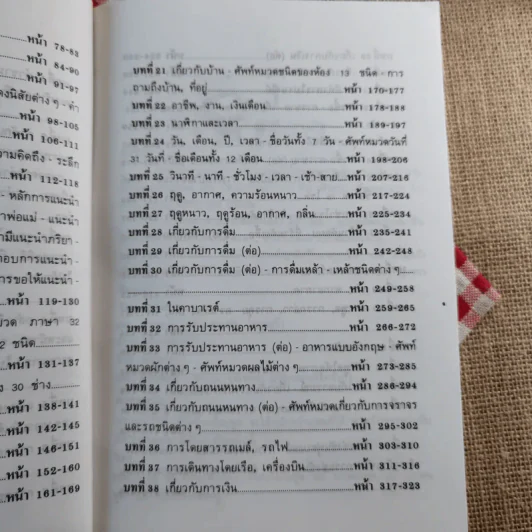 หน้า 78-83
หน้า 84-90
หน้า 91-97
หน้า 98-105
หน้า 106-111
หน้า 112-118
- หลักการแนะนำ
หน้า 119-130
ภาษา 32
2 ชนิด
หน้า 131-137
30 ช่าง
หน้า 138-141
หน้า 142-145
หน้า 146-151
หน้า 152-160
หน้า 161-169
บทที่ 21 เกี่ยวกับบ้าน - ศัพท์หมวดชนิดของห้อง 13 ชนิด - การ
ถามถึงบ้าน, ที่อยู่ หน้า 170-177
บทที่ 22 อาชีพ, งาน, เงินเดือน หน้า 178-188
บทที่ 23 นาฬิกาและเวลา หน้า 189-197
บทที่ 24 วัน, เดือน, ปี, เวลา - ชื่อวันทั้ง 7 วัน - ศัพท์หมวดวันที่
31 วันที่ - ชื่อเดือนทั้ง 12 เดือน หน้า 198-206
บทที่ 25 วินาที - นาที - ชั่วโมง - เวลา - เช้า-สาย หน้า 207-216
บทที่ 26 ฤดู, อากาศ, ความร้อนหนาว หน้า 217-224
บทที่ 27 ฤดูหนาว, ฤดูร้อน, อากาศ, กลิ่น หน้า 225-234
บทที่ 28 เกี่ยวกับการดื่ม หน้า 235-241
บทที่ 29 เกี่ยวกับการดื่ม (ต่อ) หน้า 242-248
บทที่ 30 เกี่ยวกับการดื่ม (ต่อ) - การดื่มเหล้า - เหล้าชนิดต่าง ๆ
หน้า 249-258
บทที่ 31 ในคาบาเรต์ หน้า 259-265
บทที่ 32 การรับประทานอาหาร หน้า 266-272
บทที่ 33 การรับประทานอาหาร (ต่อ) - อาหารแบบอังกฤษ - ศัพท์
หมวดผักต่าง ๆ - ศัพท์หมวดผลไม้ต่าง ๆ หน้า 273-285
บทที่ 34 เกี่ยวกับถนนหนทาง หน้า 286-294
บทที่ 35 เกี่ยวกับถนนหนทาง (ต่อ) - ศัพท์หมวดเกี่ยวกับการจราจร
และรถชนิดต่าง ๆ หน้า 295-302
บทที่ 36 การโดยสารรถเมล์, รถไฟ หน้า 303-310
บทที่ 37 การเดินทางโดยเรือ, เครื่องบิน หน้า 311-316
บทที่ 38 เกี่ยวกับการเงิน หน้า 317-323